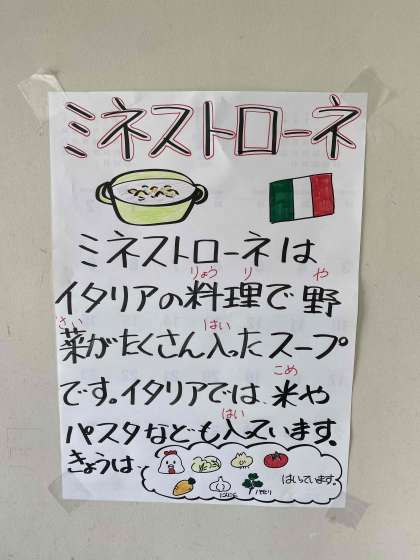 ミネストローネ
ミネストローネは
りょう り や
イタリアの料理で野
さい はい
菜がたくさん入ったスープ
こめ
です。イタリアでは、米や
はい
パスタなども入っています。
きょうは、
はいています。
にんにく パセリ